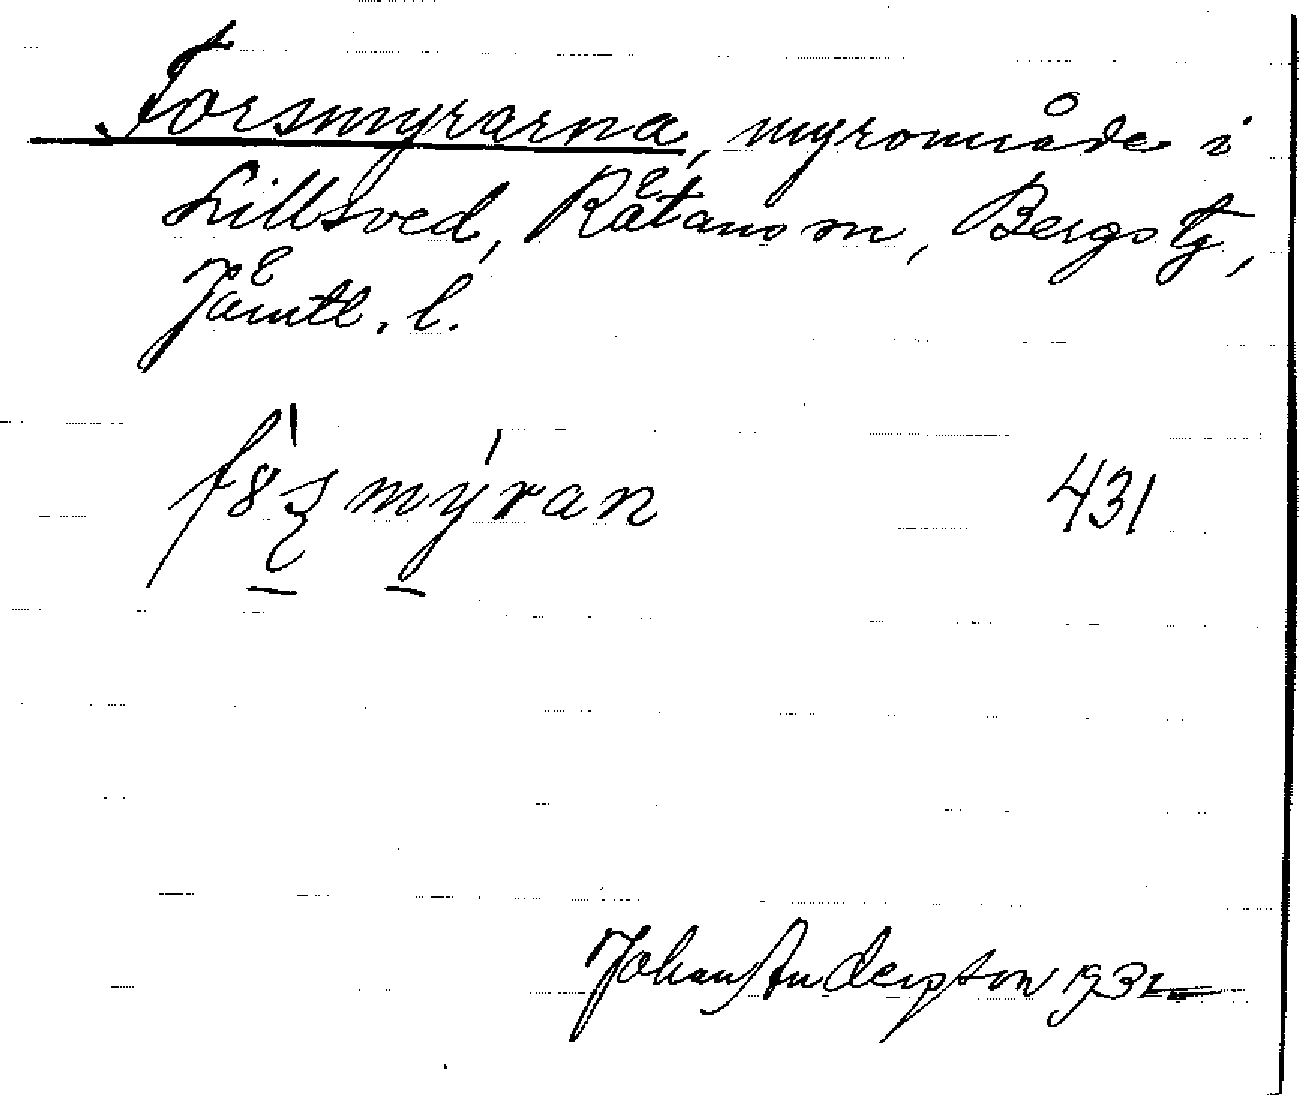 Forsmyrarna, myrområde i
Lillsved, Rätans sn, Bergs tg,
Jämtl. l.
431
Johan Andersson 1932